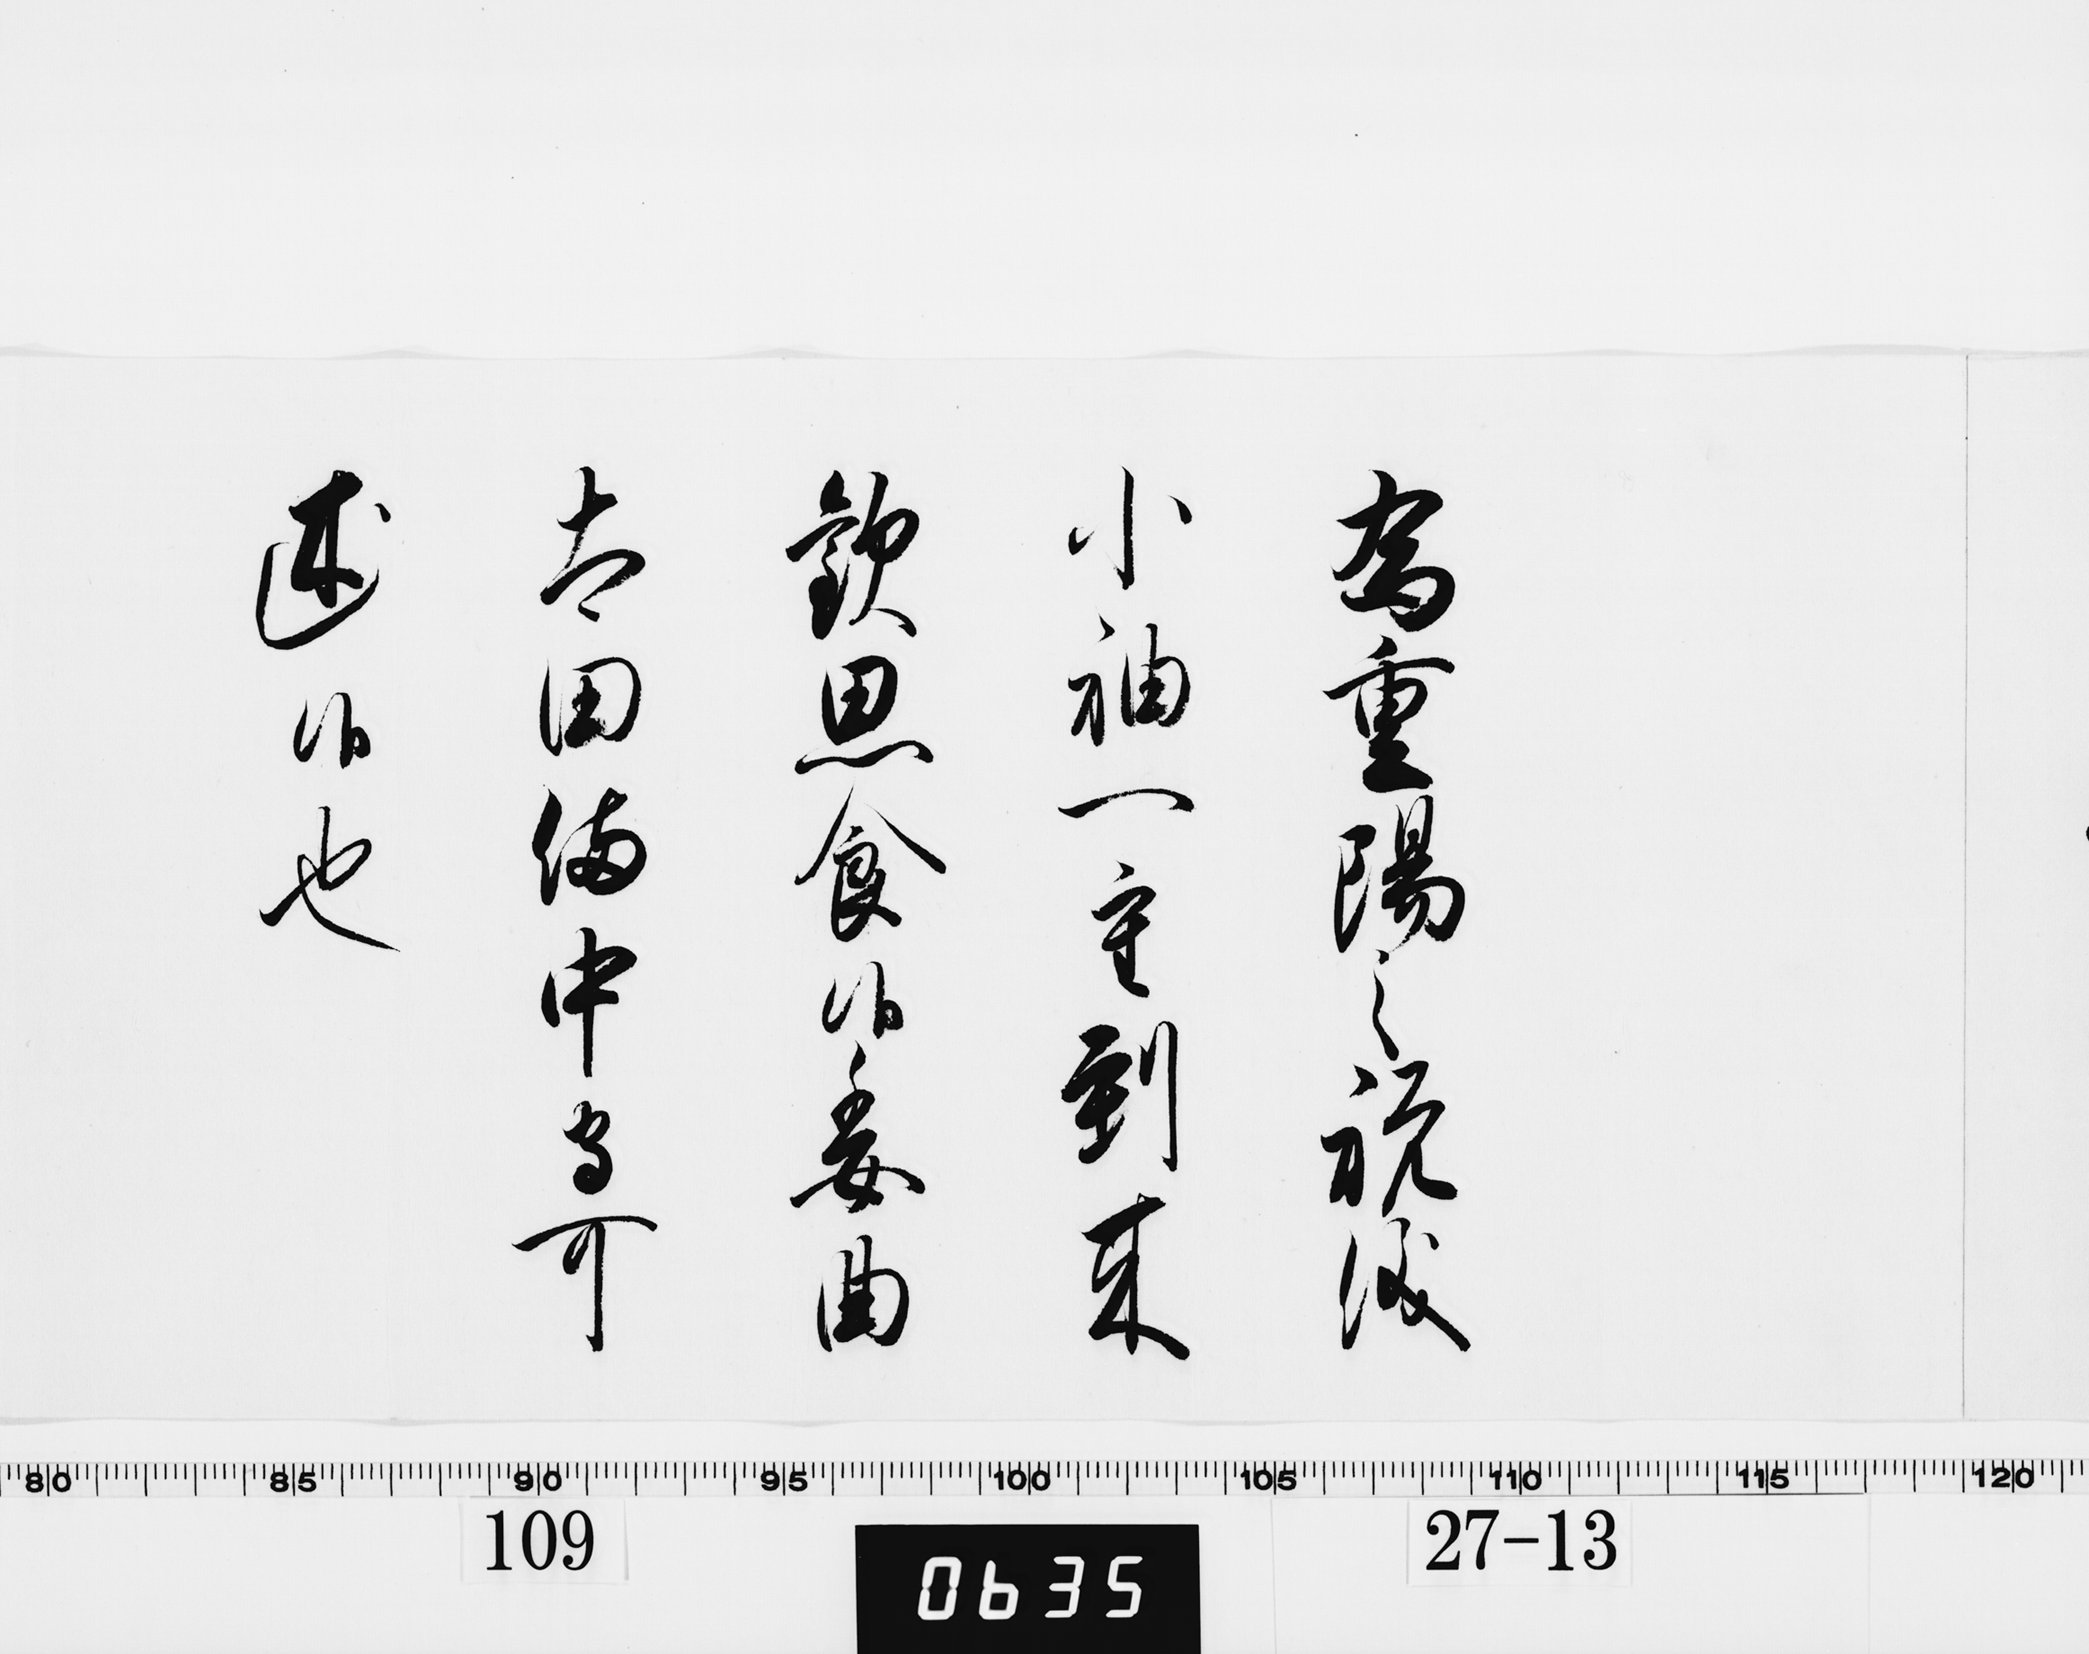 為重陽之祝儀
小袖一重到来
歓思食候委曲
太田備中守可
述候也
80 85 90 95 100 105 110 115 120
109
0635
27-13